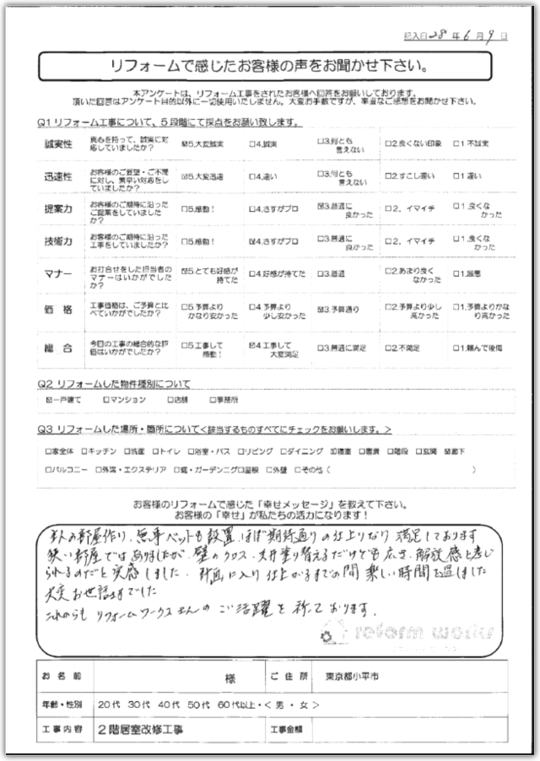 記入日 28 年 6 月 9 日
リフォームで感じたお客様の声をお聞かせ下さい。
本アンケートは、リフォーム工事をされたお客様へ回答をお願いしております。
頂いた回答はアンケート目的以外に一切使用いたしません。大変お手数ですが、率直なご感想をお聞かせ下さい。
Q1 リフォーム工事について、5段階にて採点をお願い致します。
誠実性 真心を持って、誠実に対応していましたか? ☑5.大変誠実 □4.誠実 □3.何とも言えない □2.良くない印象 □1 不誠実
迅速性 お客様のご要望・ご不満に対し、素早い対応をしていましたか? ☑5.大変迅速 □4.速い □3.何とも言えない □2.すこし遅い □1 遅い
提案力 お客様のご期待に沿ったご提案をしていましたか? □5.感動! □4.さすがプロ ☑3.普通に良かった □2.イマイチ □1.良くなかった
技術力 お客様のご期待に沿った工事をしていましたか? □5.感動! ☑4.さすがプロ □3.普通に良かった □2.イマイチ □1.良くなかった
マナー お打合せをした担当者のマナーはいかがでしたか? ☑5.とても好感が持てた □4.好感が持てた □3.普通 □2.あまり良くなかった □1.最悪
価格 工事価格は、ご予算と比べていかがでしたか? □5.予算よりかなり安かった □4.予算より少し安かった ☑3.予算通り □2.予算より少し高かった □1.予算よりかなり高かった
総合 今回の工事の総合的な評価はいかがでしたか? □5.工事して感動! ☑4.工事して大変満足 □3.普通に満足 □2.不満足 □1.頼んで後悔
Q2 リフォームした物件種別について
☑一戸建て □マンション □店舗 □事務所
Q3 リフォームした場所・箇所について<該当するものすべてにチェックをお願いします。>
□家全体 □キッチン □洗面 □トイレ □浴室・バス □リビング □ダイニング ☑寝室 □書斎 □階段 □玄関 ☑廊下
□バルコニー □外構・エクステリア □庭・ガーデニング □屋根 □外壁 □その他( )
お客様のリフォームで感じた「幸せメッセージ」を教えて下さい。
お客様の「幸せ」が私たちの活力になります!
の部屋作り、無事ベットも設置、ほぼ期待通りの仕上りになり満足しております
狭い部屋ではありましたが、壁のクロス、天井塗り替えるだけでも広さ、解放感を感じ
られるのだと実感しました。計画に入り仕上がるまでの間楽しい時間を過しました
大変お世話さまでした
これからもリフォームワークスさんのご活躍を祈っております。
reform works
お名前 様 ご住所 東京都小平市
年齢・性別 20代 30代 40代 50代 60代以上・<男・女>
工事内容 2階居室改修工事 工事金額